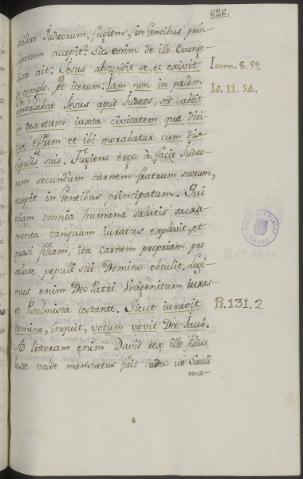 626.
Judeorum, fugiens, in Gentibus prin-
cipatum accepit. Sic enim de illo Evange-
lista ait: Jesus abscondit se et exivit
de templo, et iterum: Iam, non in palam
ambulabat Jesus apud Judeos, sed abiit
in desertum iuxta civitatem, quæ dici-
tur Effrem et ibi morabatur cum dis-
cipulis suis. Fugiens ergo à facie Judeo-
rum secundum carnem fratrum suorum,
accepit in Gentibus principatum. Qui
etiam omnia humanæ salutis sacra-
menta tanquam iuratus explevit, et
quasi filiam, ita carnem propriam pro
salute populi sui Domino obtulit. Legi-
mus enim Deo Patri Unigenitum iuras-
se Psalmista testante. Sicut iuravit
Domino, inquit, votum vovit Deo Jacob.
Ad litteram enim David rex ille filius
Jesse valde mansuetus fuit adeo ut Sauli
ma-
Joann. 8. 59.
Io. 11. 54.
Ps. 131. 2